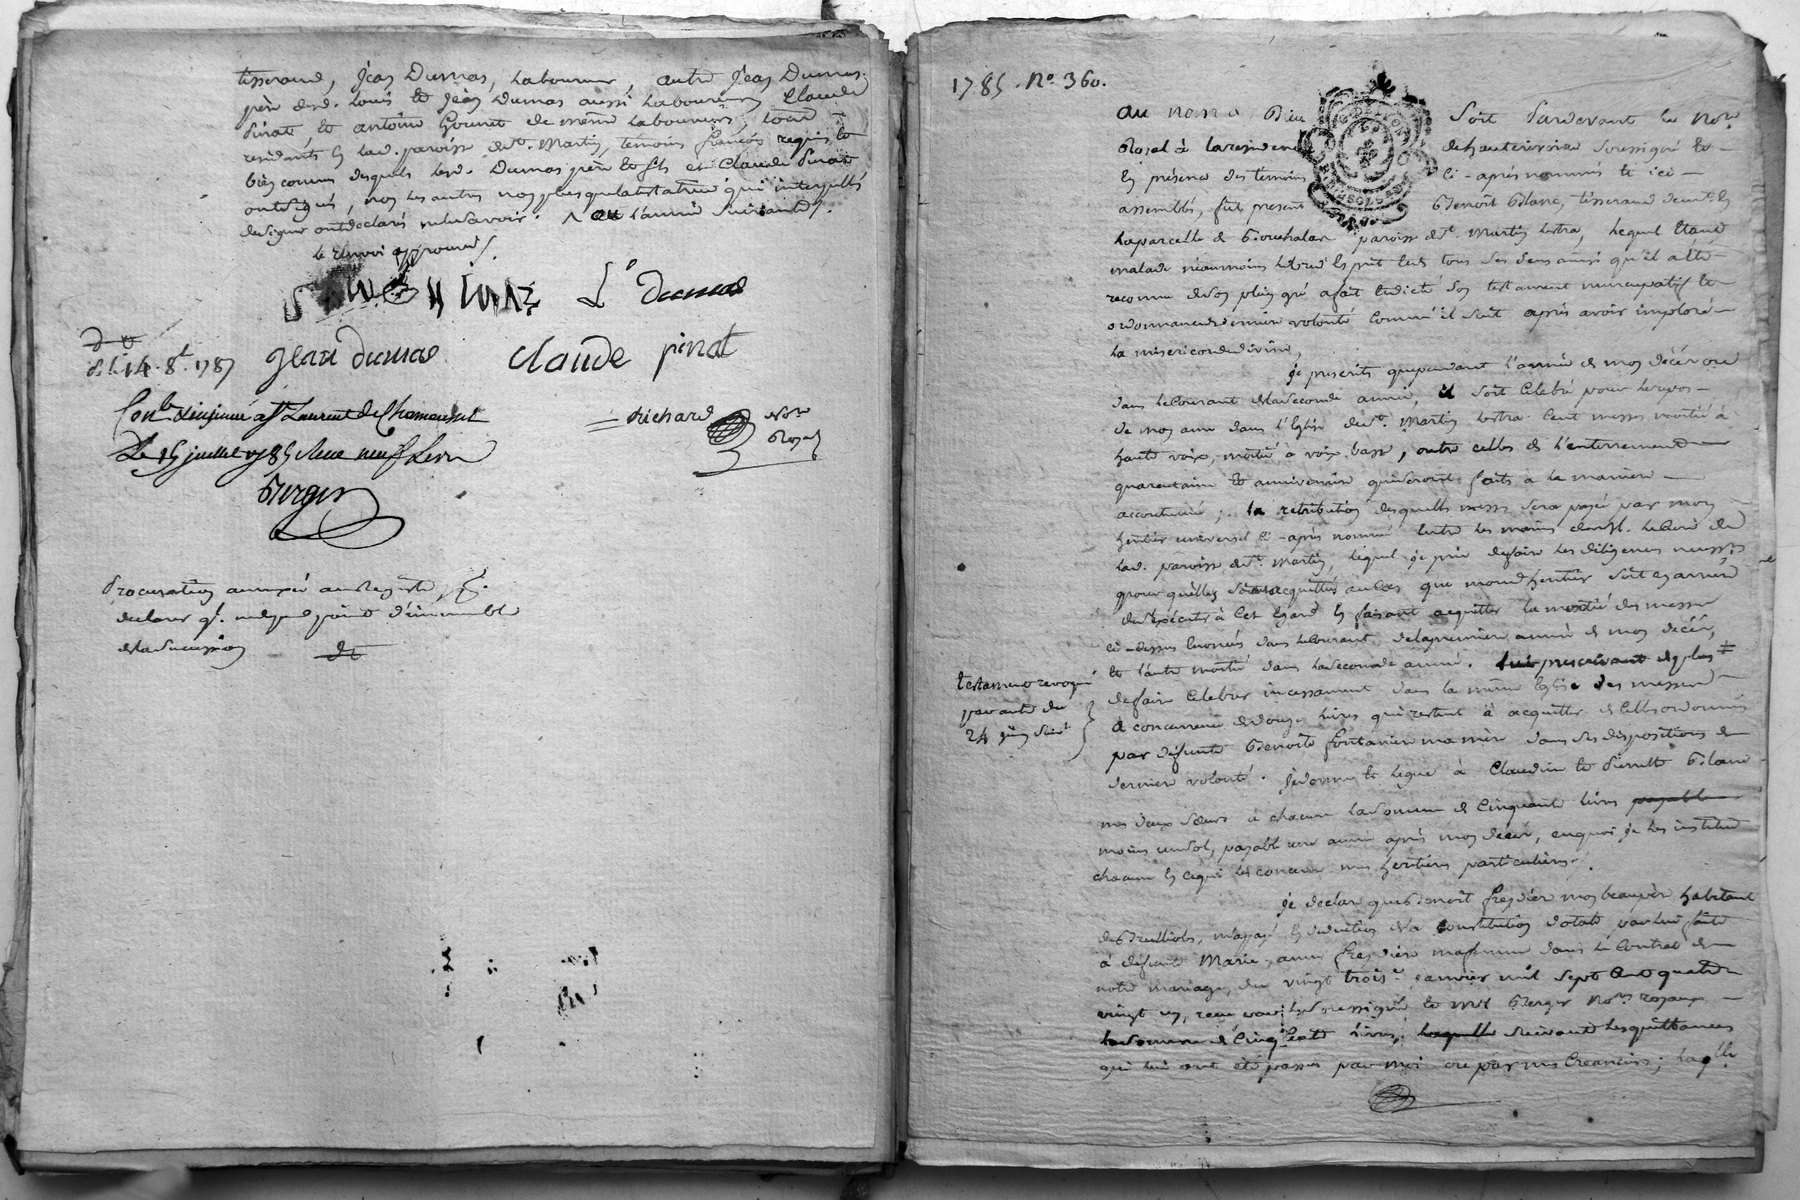 tisserand, Jean Dumas, Laboureur, autre Jean Dumas
père desd. Louis et Jean Dumas aussi Laboureurs, Claude
Pinat, et antoine Gounet de même Laboureurs, tous
residants en lad. paroisse de St. Martin, temoins françois requis et
bien connus desquels lesd. Dumas père et fils et Claude Pinat
ont signés, non les autres non plus que la testatrice qui interpellés
de signer ont declaré ne le savoir. ou l'année suivante /.
le Renvoi approuvé /.
L's dumas
Jean dumas claude pinat
d. le 14. 8.t 1787
Con.le & insinué a St. Laurent de Chamousset = Richard No.re
Le 15 juillet 1785 Reçu neuf Livres Royal
Berger
Procuration annexée au Registre
declare q. ne depend point d'immeuble
de la Succession
1785. No. 360.
Au nom de Dieu Soit Pardevant le No.re
Royal à la residence de hauterivoire soussigné et
En présence des temoins ci-après nommés et ici
assemblés, fut present Benoit Blanc, tisserand demt. En
la parcelle de paroisse de St. Martin Lestra, Lequel Etant
malade néanmoins Libre d'Esprit Et de tous ses sens ainsi qu'il a été
reconnu de son plein gré a fait et dicté Son testament nuncupatif et
ordonnance de dernière volonté Comme il suit après avoir imploré
la misericorde divine,
je prescrits que pendant l'année de mon décès ou
dans le Courant de la seconde année, il soit Celebré pour le repos
de mon ame dans l'Eglise de St. Martin Lestra Cent messes moitié à
haute voix, moitié à voix basse, outre celles de l'enterrement
quarantaine et anniversaire qui seront faits à la manière
accoutumée; la retribution desquelles messes sera payée par mon
heritier universel ci-après nommé Entre les mains de Mr. le Curé de
lad. paroisse de St. Martin, lequel je prie de faire les diligences necess.res
pour qu'elles soient acquittées au cas que mond. heritier soit en arriere
d'executer à Cet Egard En faisant acquitter la moitié des messes
ci-dessus Enoncés dans le Courant de la premiere année de mon décès,
et l'autre moitié dans la seconde année. lui prescrivant de plus
de faire Celebrer incessamment dans la même Eglise des messes
a concurrence de douze livres qui restent à acquitter de Celles ordonnées
par defunte Benoite fontanier ma mère dans ses dispositions de
derniere volonté. je donne et legue à Claudine et Pierrette Blanc
mes deux sœurs à chacune la somme de Cinquante livres payable
moins un sol, payable une année après mon décès, en quoi je les institue
chacune En ce qui les concerne mes heritieres particulieres /.
testament revoqué
par acte du
24 juin
je declare que Benoît freydière mon beaupère habitant
de Brullioles, m'a payé En deduction de la Constitution dotale par lui faite
à defunte Marie-anne freydière ma femme dans le Contrat de
notre mariage, du vingt trois.e janvier mil Sept Cent quatre
vingt un, reçu par le soussigné et Me. Berger No.res royaux
la somme de Cinq Cent livres, laquelle suivant les quittances
qui lui ont été passées par moi ou par mes Creanciers; laq.lle